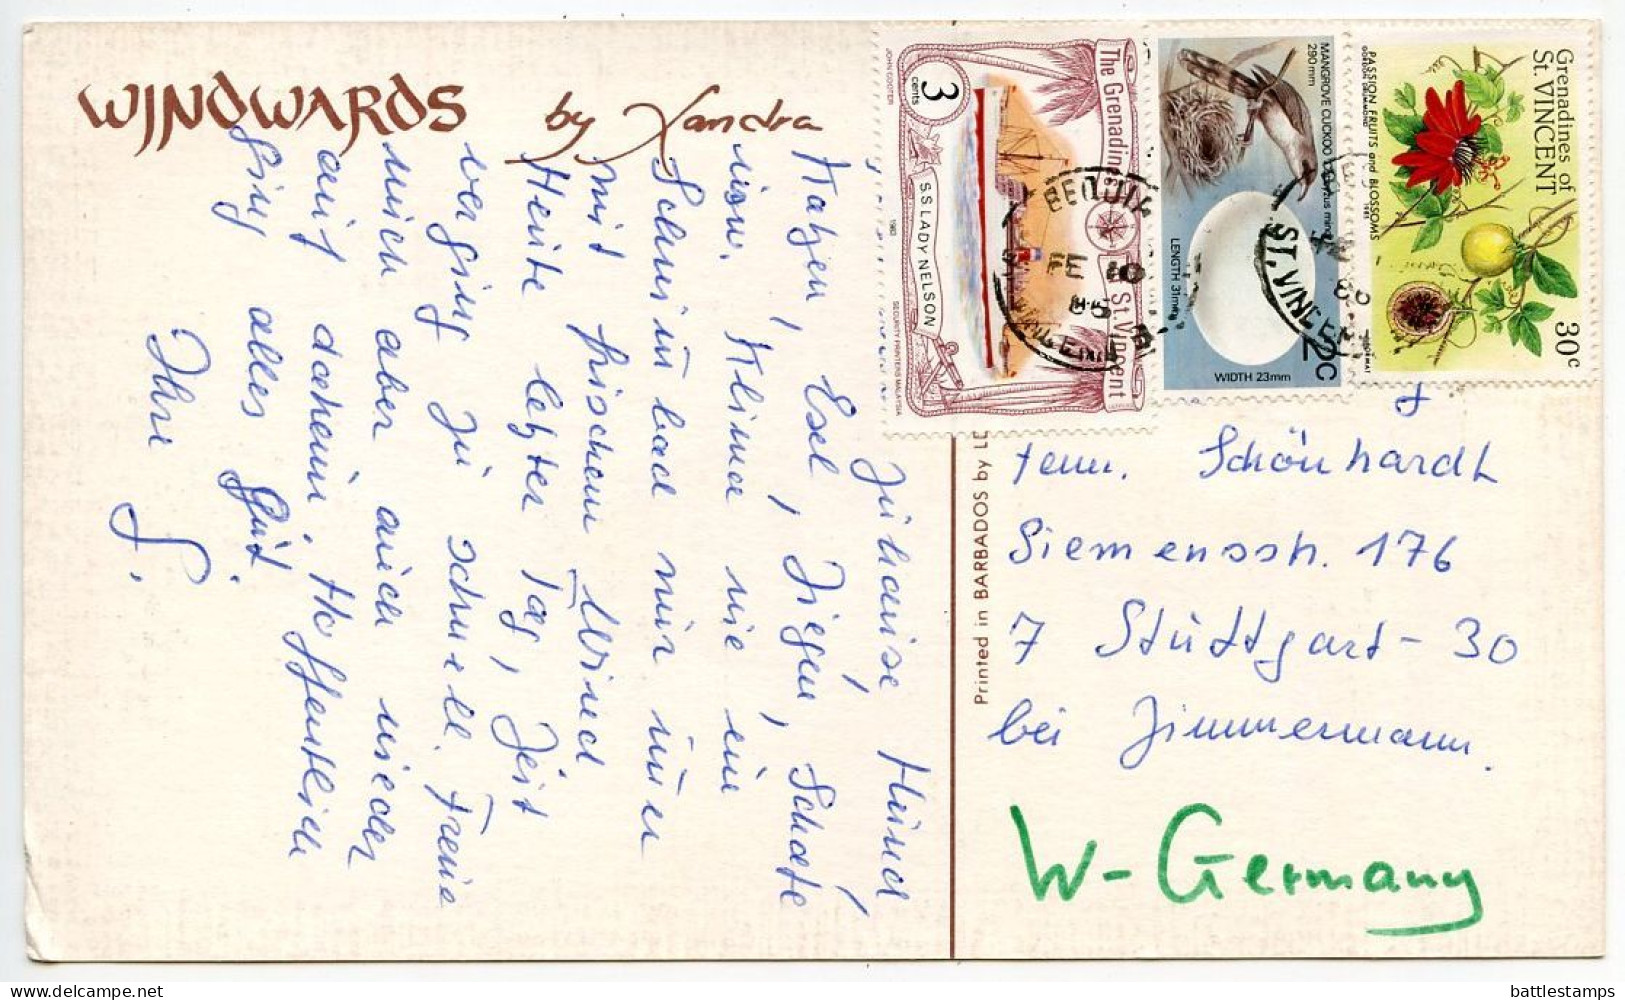 WINDWARDS
by Sandra
zuhause, Hund
Katzen, Esel, Ziegen, Schafe
usw. Klima wie ein
Schaumbad mir nur
mit frischem Wind
Heute letzter Tag, Zeit
verging zu schnell. Freue
mich aber auch wieder
auf daheim. Hoffentlich
ging alles gut.
Ihre
3
cents
The Grenadines of St. Vincent
SS LADY NELSON
JOHN COOTER
1983
SECURITY PRINTERS MALAYSIA
MANGROVE CUCKOO
290 mm
LENGTH 31mm
WIDTH 23mm
Grenadines of
St. VINCENT
PASSION FRUITS and BLOSSOMS
GORDON DRUMMOND
1985
30c
BEQUIA
FE 10
86
ST. VINCENT
Printed in BARBADOS by
Fam. Schönhardt
Siemensstr. 176
7 Stuttgart-30
bei Zimmermann.
W-Germany
battlestamps